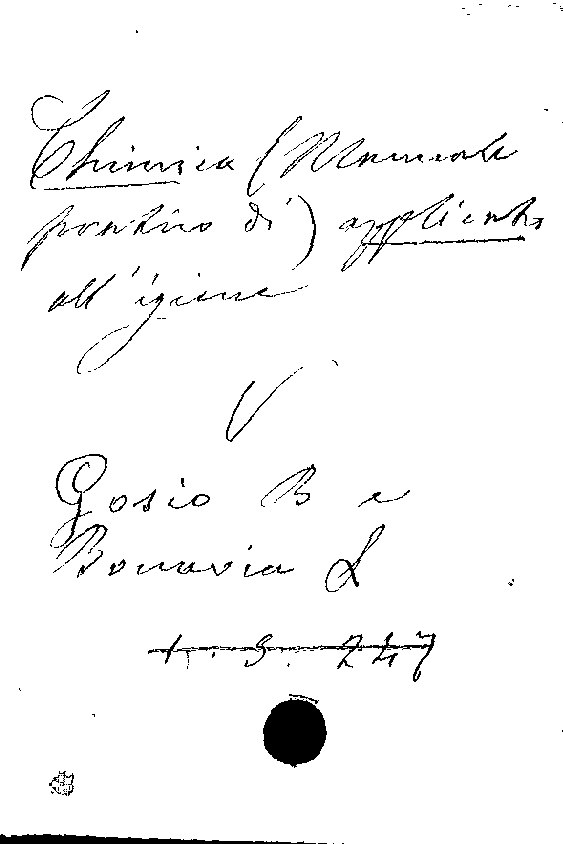 Chimica (Manuale
pratico di) applicata
all'igiene
V
Gosio B e
Bonavia L
1. S. 247